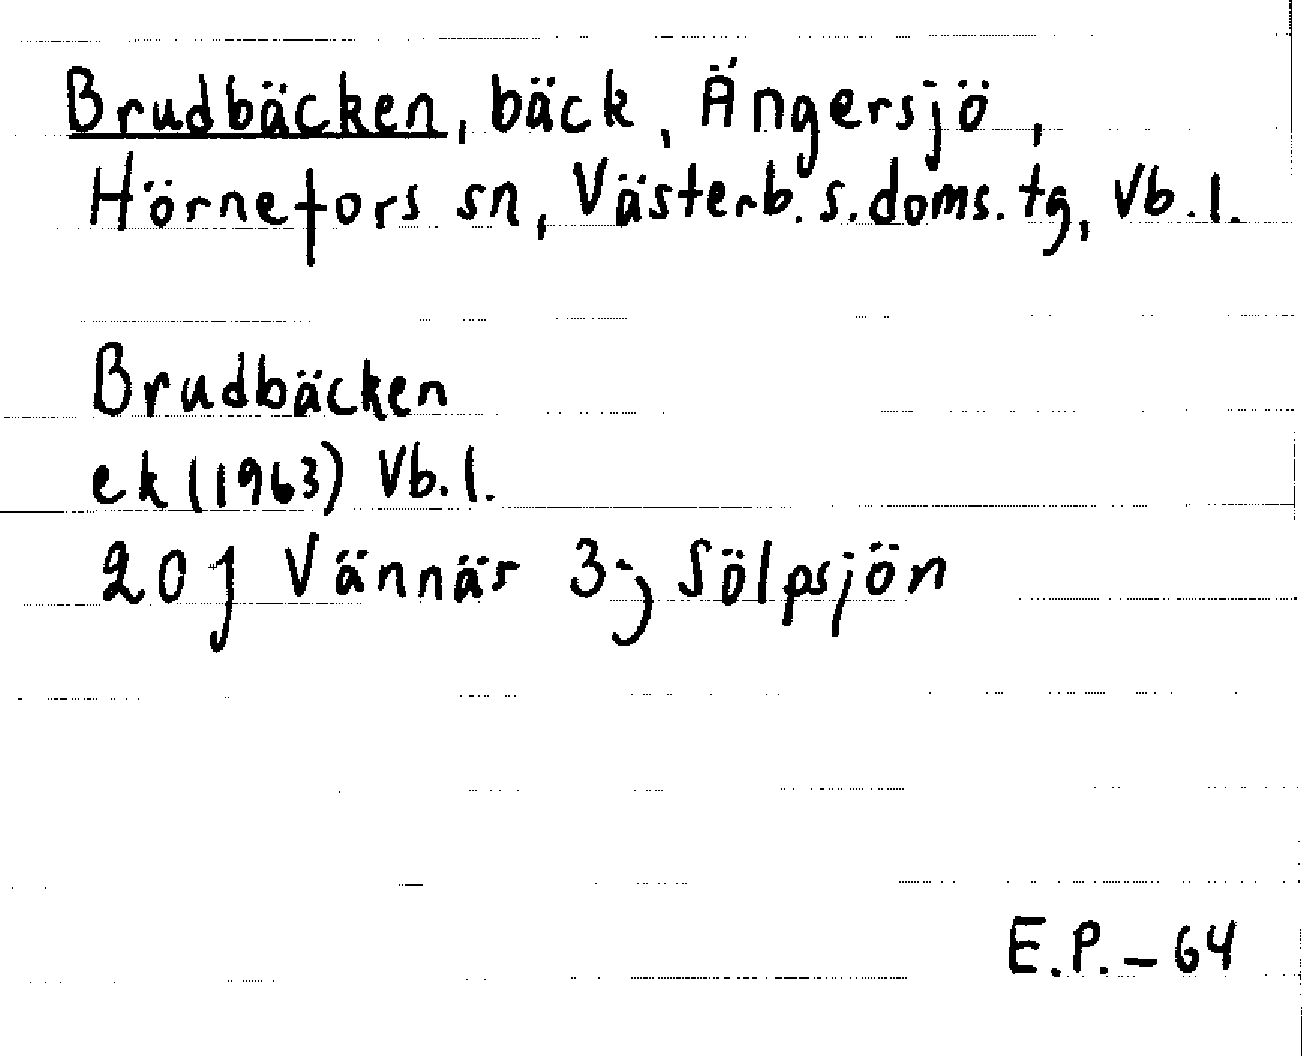 Brudbäcken, bäck, Ängersjö,
Hörnefors sn, Västerb. s. doms. tg, Vb. l.
Brudbäcken
ek (1963) Vb. l.
20 J Vännäs 3-j Sölpsjön
E.P. – 64